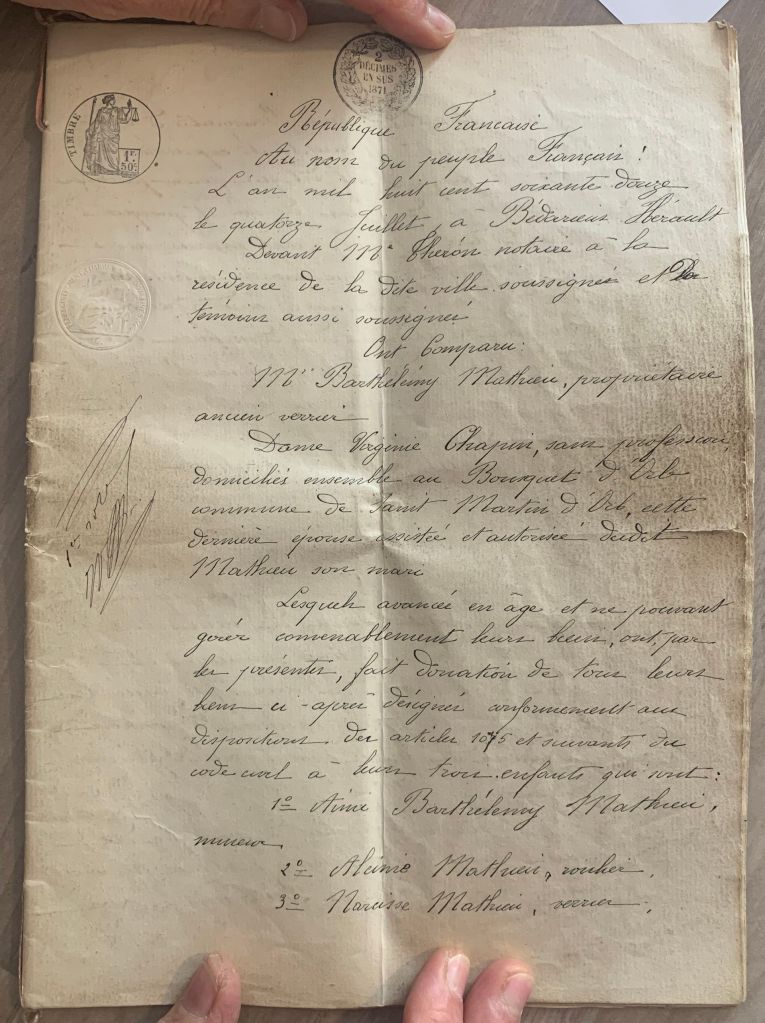 2
DÉCIMES
EN SUS
1871
TIMBRE
1F.
50C.
République Francaise
Au nom du peuple Français !
L'an mil huit cent soixante douze
le quatorze Juillet, à Bédarieux Hérault
Devant Me Théron notaire à la
résidence de la dite ville soussigné et Des
témoins aussi soussignés
Ont Comparu:
Mr Barthélémy Mathieu, propriétaire
ancien verrier
Dame Virginie Chapin, sans profession,
domiciliés ensemble au Bousquet d'Orb
commune de Saint Martin d'Orb, cette
dernière épouse assistée et autorisée dudit
Mathieu son mari
Lesquels avancés en âge et ne pouvant
gérér convenablement leurs biens, ont, par
les présentes, fait donation de tous leurs
biens ci-après désignés conformément aux
dispositions des articles 1075 et suivants du
code civil à leurs trois enfants qui sont:
1º Aimé Barthélemy Mathieu,
mineur
2º Alcinie Mathieu, roulier,
3º Narcisse Mathieu, verrier,
1er